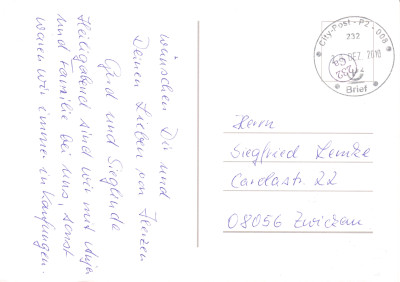 wünschen Dir und
Deinen Lieben von Herzen
Gerd und Sieglinde
Heiligabend sind wir mit Anja
und Familie bei uns, sonst
waren wir immer in Kaufungen.
City-Post - P2 - 008
232
DEZ. 2010
Brief
Herrn
Siegfried Lemke
Carolastr. 22
08056 Zwickau